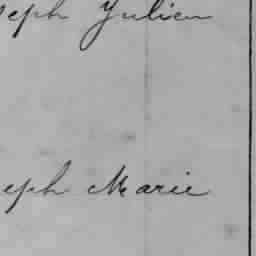 seph Julien
eph Marie